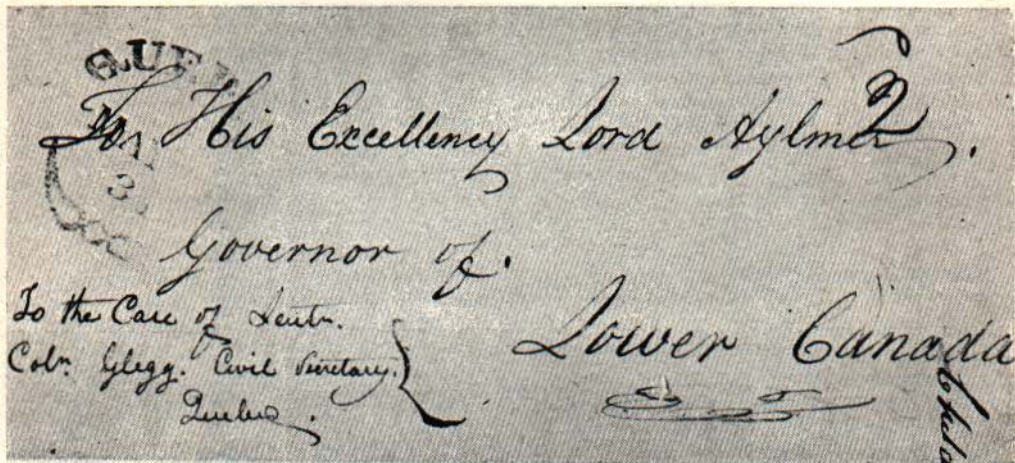 QUE
To His Excellency Lord Aylmer.
2
Governor of.
Lower Canada
To the Care of Leutn.
Coln. Glegg. Civil Secretary.
Quebec.